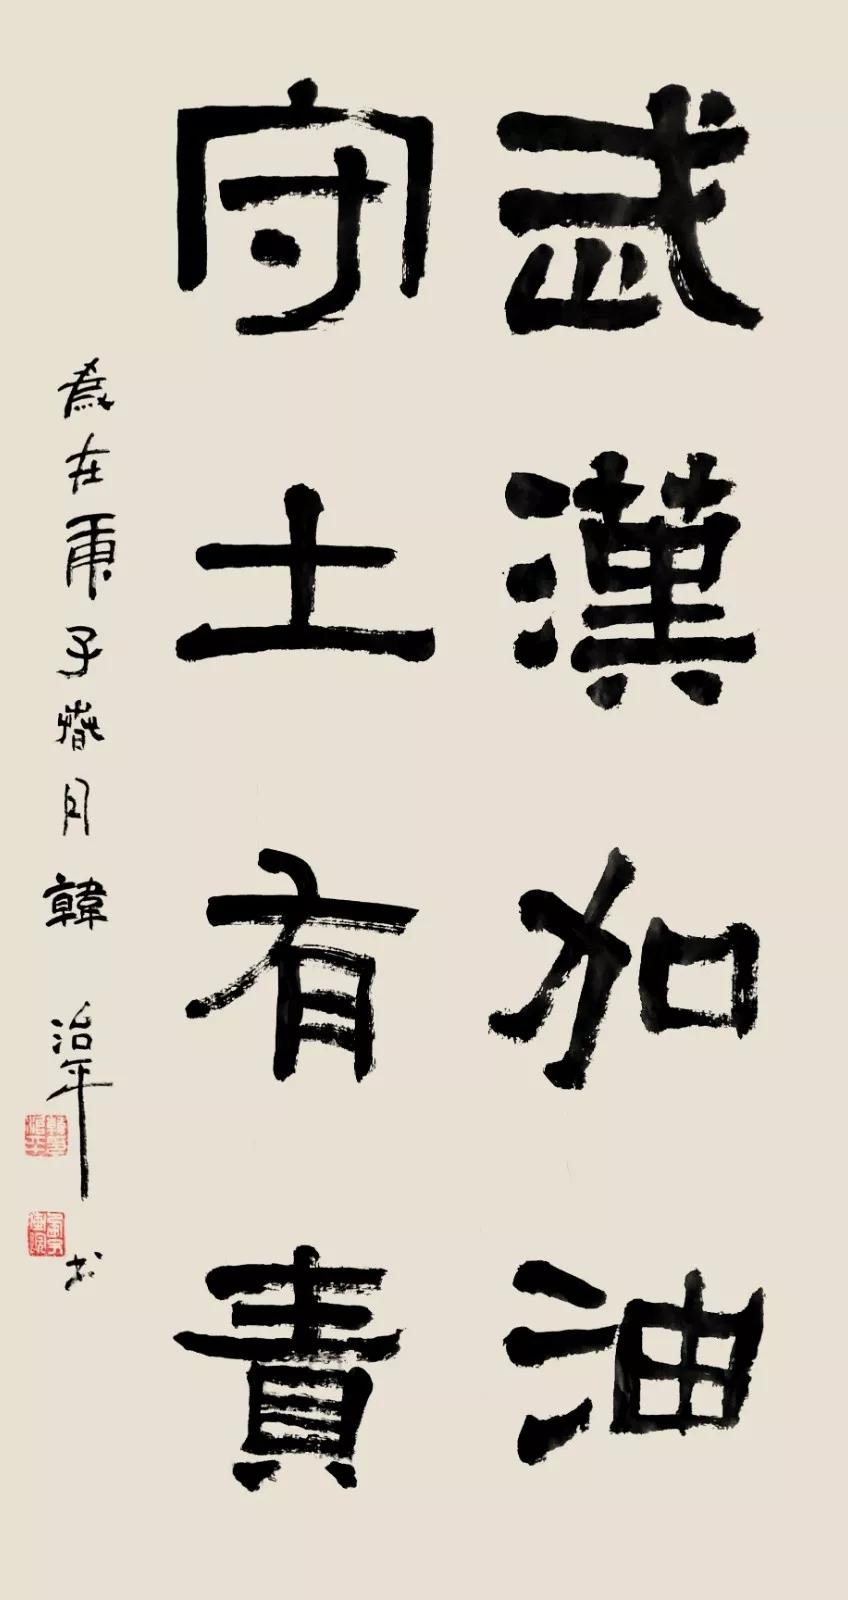 武漢加油
守土有責
歲在庚子春月韓治平書